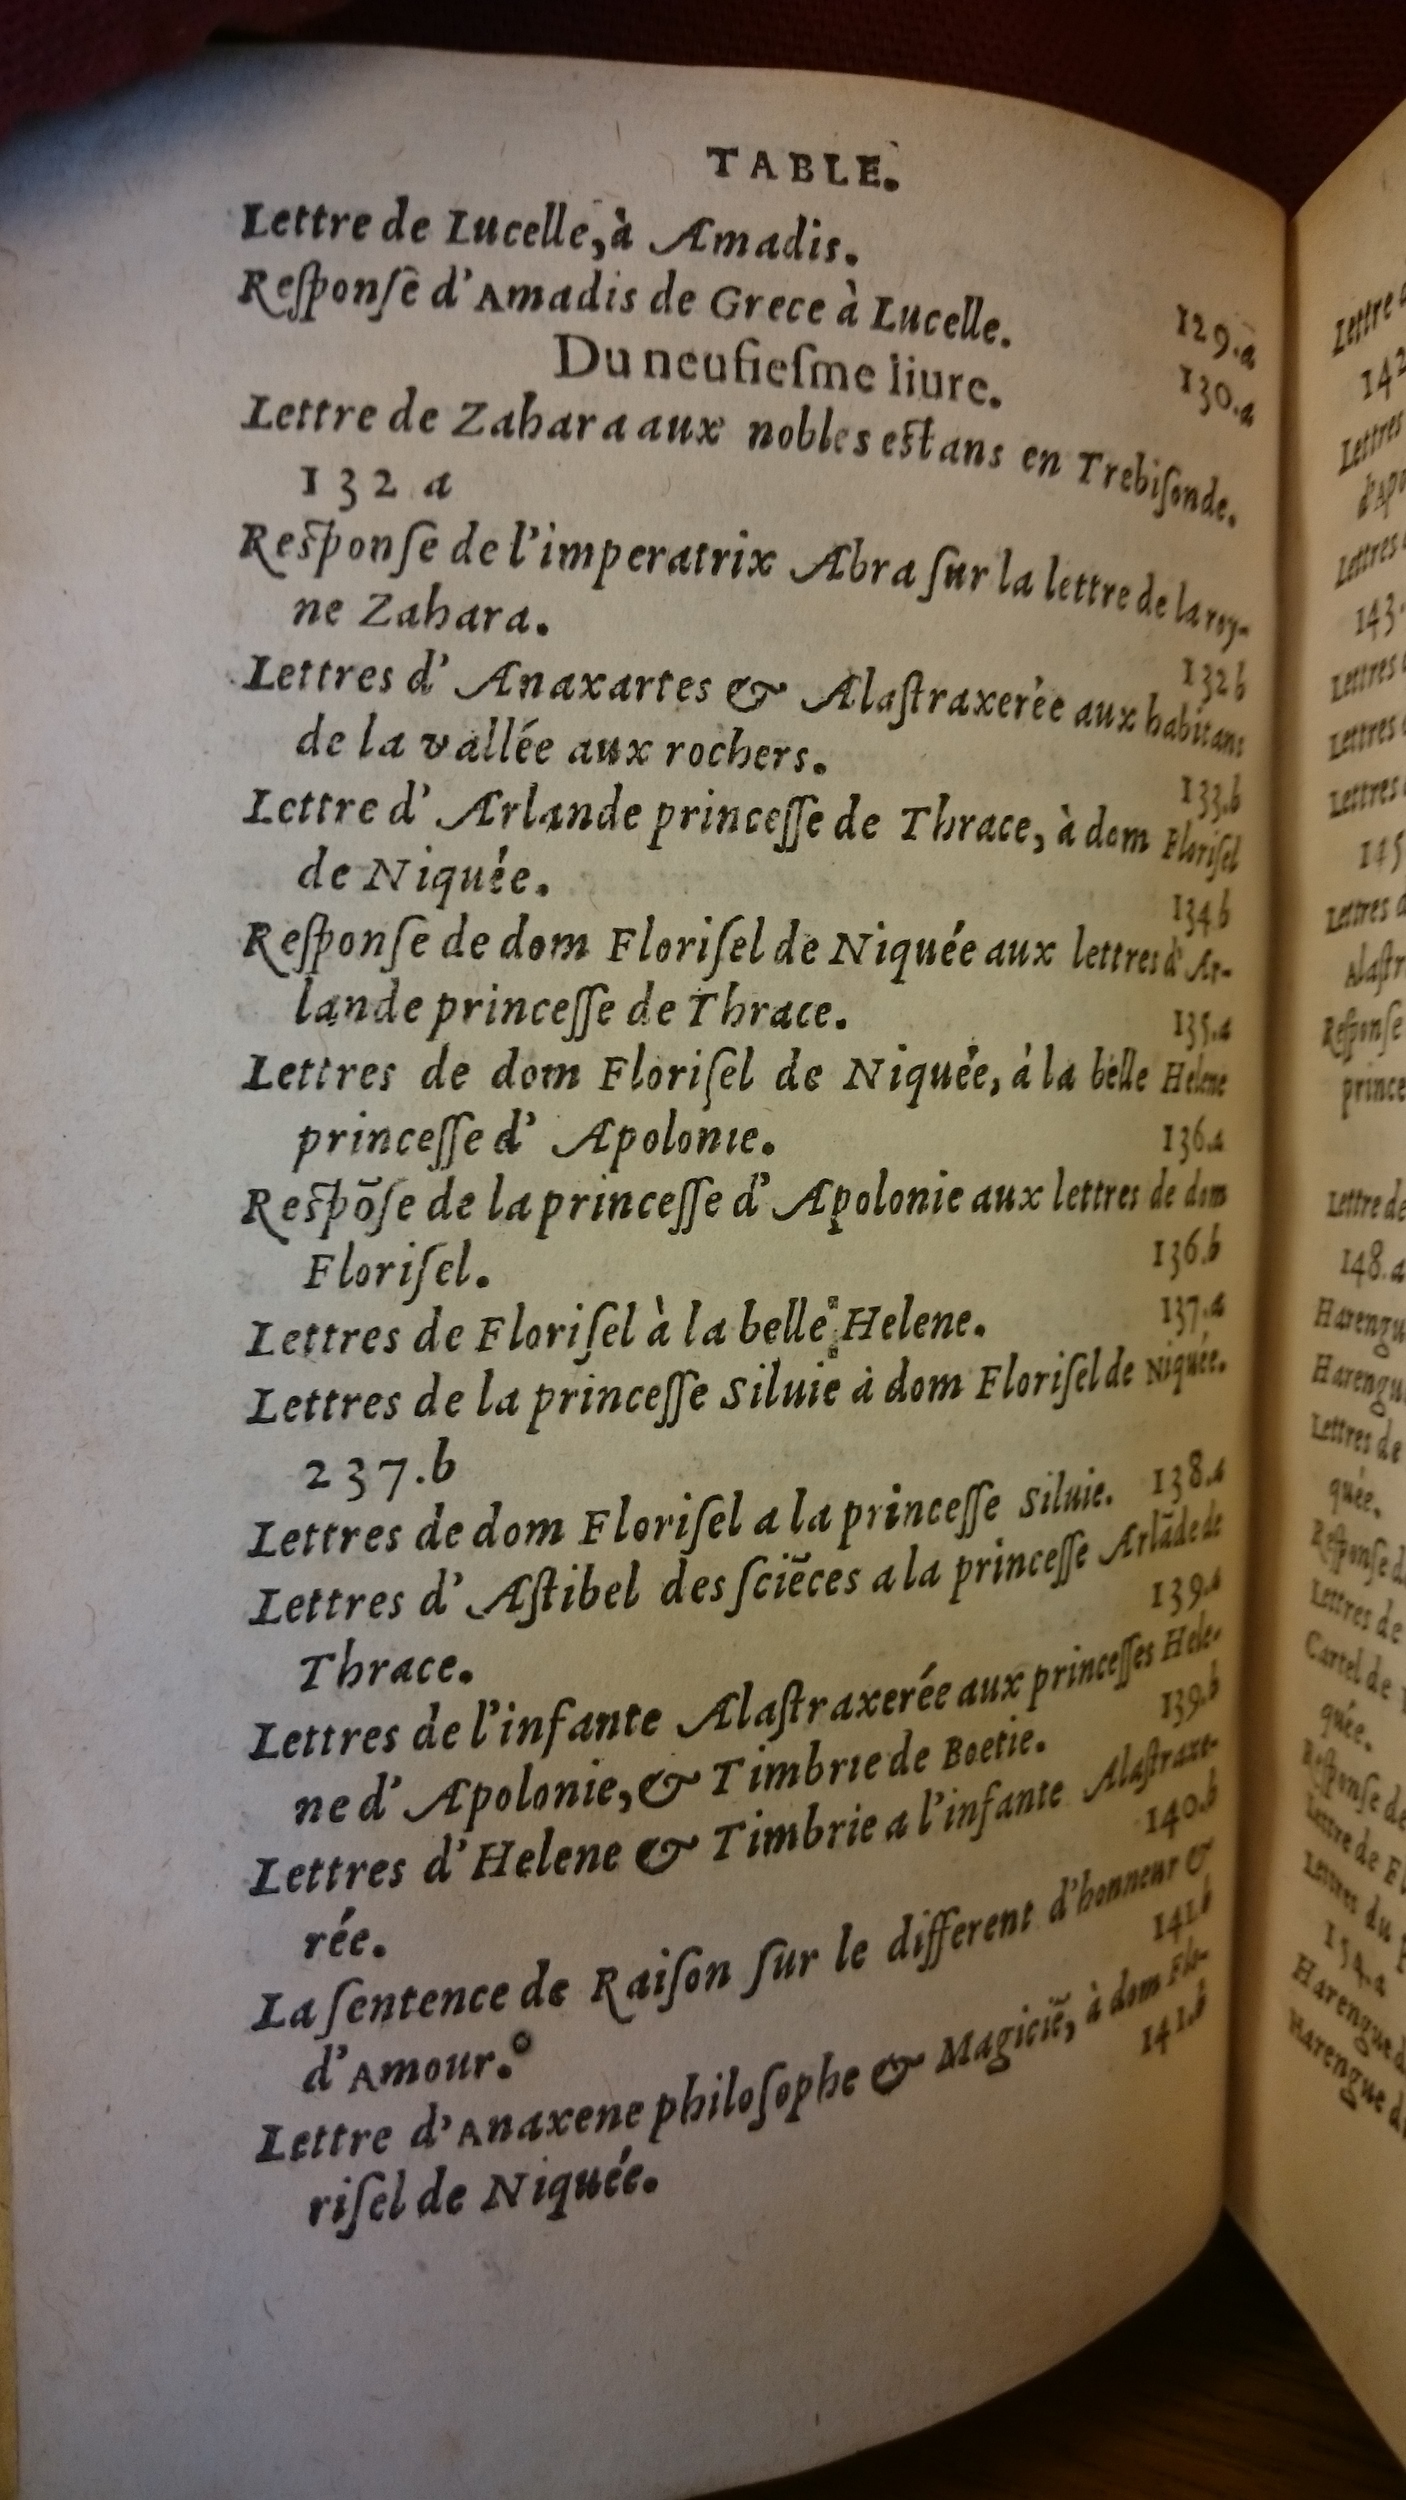 TABLE.
Lettre de Lucelle, à Amadis. 129.a
Reſponſe d'Amadis de Grece à Lucelle. 130.a
Du neufieſme liure.
Lettre de Zahara aux nobles eſtans en Trebiſonde.
132 a
Reſponſe de l'imperatrix Abra ſur la lettre de la roy-
ne Zahara. 132 b
Lettres d'Anaxartes & Alaſtraxerée aux habitans
de la vallée aux rochers. 133.b
Lettre d'Arlande princeſſe de Thrace, à dom Floriſel
de Niquée. 134 b
Reſponſe de dom Floriſel de Niquée aux lettres d'Ar-
lande princeſſe de Thrace. 135.a
Lettres de dom Floriſel de Niquée, à la belle Helene
princeſſe d'Apolonie. 136.a
Reſpõſe de la princeſſe d'Apolonie aux lettres de dom
Floriſel. 136.b
Lettres de Floriſel à la belle Helene. 137.a
Lettres de la princeſſe Siluie à dom Floriſel de Niquée.
237.b
Lettres de dom Floriſel a la princeſſe Siluie. 138.a
Lettres d'Aſtibel des ſciẽces a la princeſſe Arlãde de
Thrace. 139.a
Lettres de l'infante Alaſtraxerée aux princeſſes Hele-
ne d'Apolonie, & Timbrie de Boetie. 139.b
Lettres d'Helene & Timbrie a l'infante Alaſtraxe-
rée. 140.b
La ſentence de Raiſon ſur le different d'honneur &
d'Amour. 141.b
Lettre d'Anaxene philoſophe & Magiciẽ, à dom Flo-
riſel de Niquée. 141.b
Lettre
142
Lettres
d'Apo
Lettres
143.
Lettres
Lettres
Lettres
145
Lettres
Alaſtr
Reſponſe
prince
Lettre de
148.a
Harengu
Harengu
Lettres de
quée.
Reſponſe d
Lettres de
Cartel de
quée.
Reſponſe de
Lettre de Fl
Lettres du
154.a
Harengue d
Harengue d